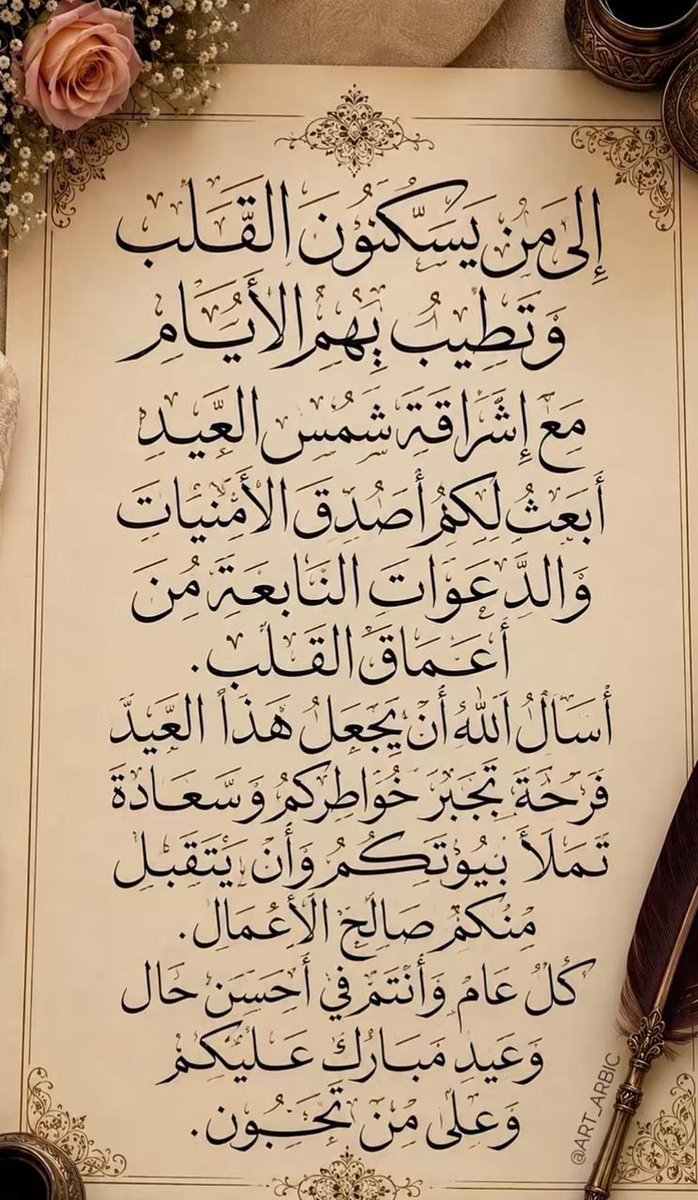 إِلَى مَن يَسْكُنُونَ القَلب
وَتَطِيبُ بِهِمُ الأَيَّامِ
مَعَ إِشْرَاقَةِ شَمْسِ العِيدِ
أَبعَثُ لَكُمْ أَصْدَقَ الأُمْنِيَاتِ
وَالدَّعَوَاتَ النَّابِعَةِ مِنْ
أَعمَاقَ القَلب.
أَسْأَلُ اللهَ أَن يَجْعَلَ هَذَا العِيدَ
فَرْحَةً تَجْبُرَ خَوَاطِركُمْ وَسَعَادَةً
تَملَأَ بيُوتَكُمْ وَأَنْ يَتَقَبل
مِنْكُمْ صَالِحَ الأَعْمَالِ.
كُلُ عَام وَأَنتُمْ فِي أَحسَنِ حَال
وَعِيد مُبَارَك عَلَيكُمْ
وَعلَى مَنْ تُحِبُون.
@ART_ARBIC